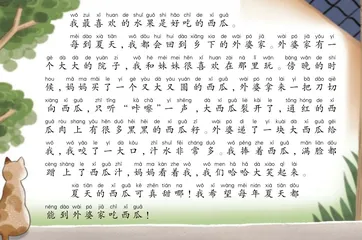 wǒ zuì xǐ huan de shuǐ guǒ shì hǎo chī de xī guā
我最喜欢的水果是好吃的西瓜。
měi dào xià tiān wǒ dōu huì huí dào xiāng xià de wài pó jiā wài pó jiā yǒu yí
每到夏天，我都会回到乡下的外婆家。外婆家有一
gè dà dà de yuàn zi wǒ hé mèi mei hěn xǐ huan zài nà lǐ wán bàng wǎn de shí
个大大的院子，我和妹妹很喜欢在那里玩。傍晚的时
hou mā ma mǎi le yí gè yòu dà yòu yuán de xī guā wài pó ná lái yì bǎ dāo qiē
候，妈妈买了一个又大又圆的西瓜，外婆拿来一把刀切
xiàng xī guā zhǐ tīng kā chā yì shēng dà xī guā liè kāi le tōng hóng de xī
向西瓜，只听“咔嚓”一声，大西瓜裂开了，通红的西
guā ròu shàng yǒu hěn duō hēi hēi de xī guā zǐ wài pó dì le yí kuài dà xī guā gěi
瓜肉上有很多黑黑的西瓜籽。外婆递了一块大西瓜给
wǒ wǒ yǎo le yí dà kǒu zhī shuǐ fēi cháng duō wǒ pěng zhe xī guā mǎn liǎn dōu
我，我咬了一大口，汁水非常多。我捧着西瓜，满脸都
cèng shàng le xī guā zhī mā ma kàn zhe wǒ wǒ men hā hā dà xiào qǐ lái
蹭上了西瓜汁，妈妈看着我，我们哈哈大笑起来。
xià tiān de xī guā kě zhēn tián na wǒ xī wàng měi nián xià tiān dōu
夏天的西瓜可真甜哪！我希望每年夏天都
néng dào wài pó jiā chī xī guā
能到外婆家吃西瓜！